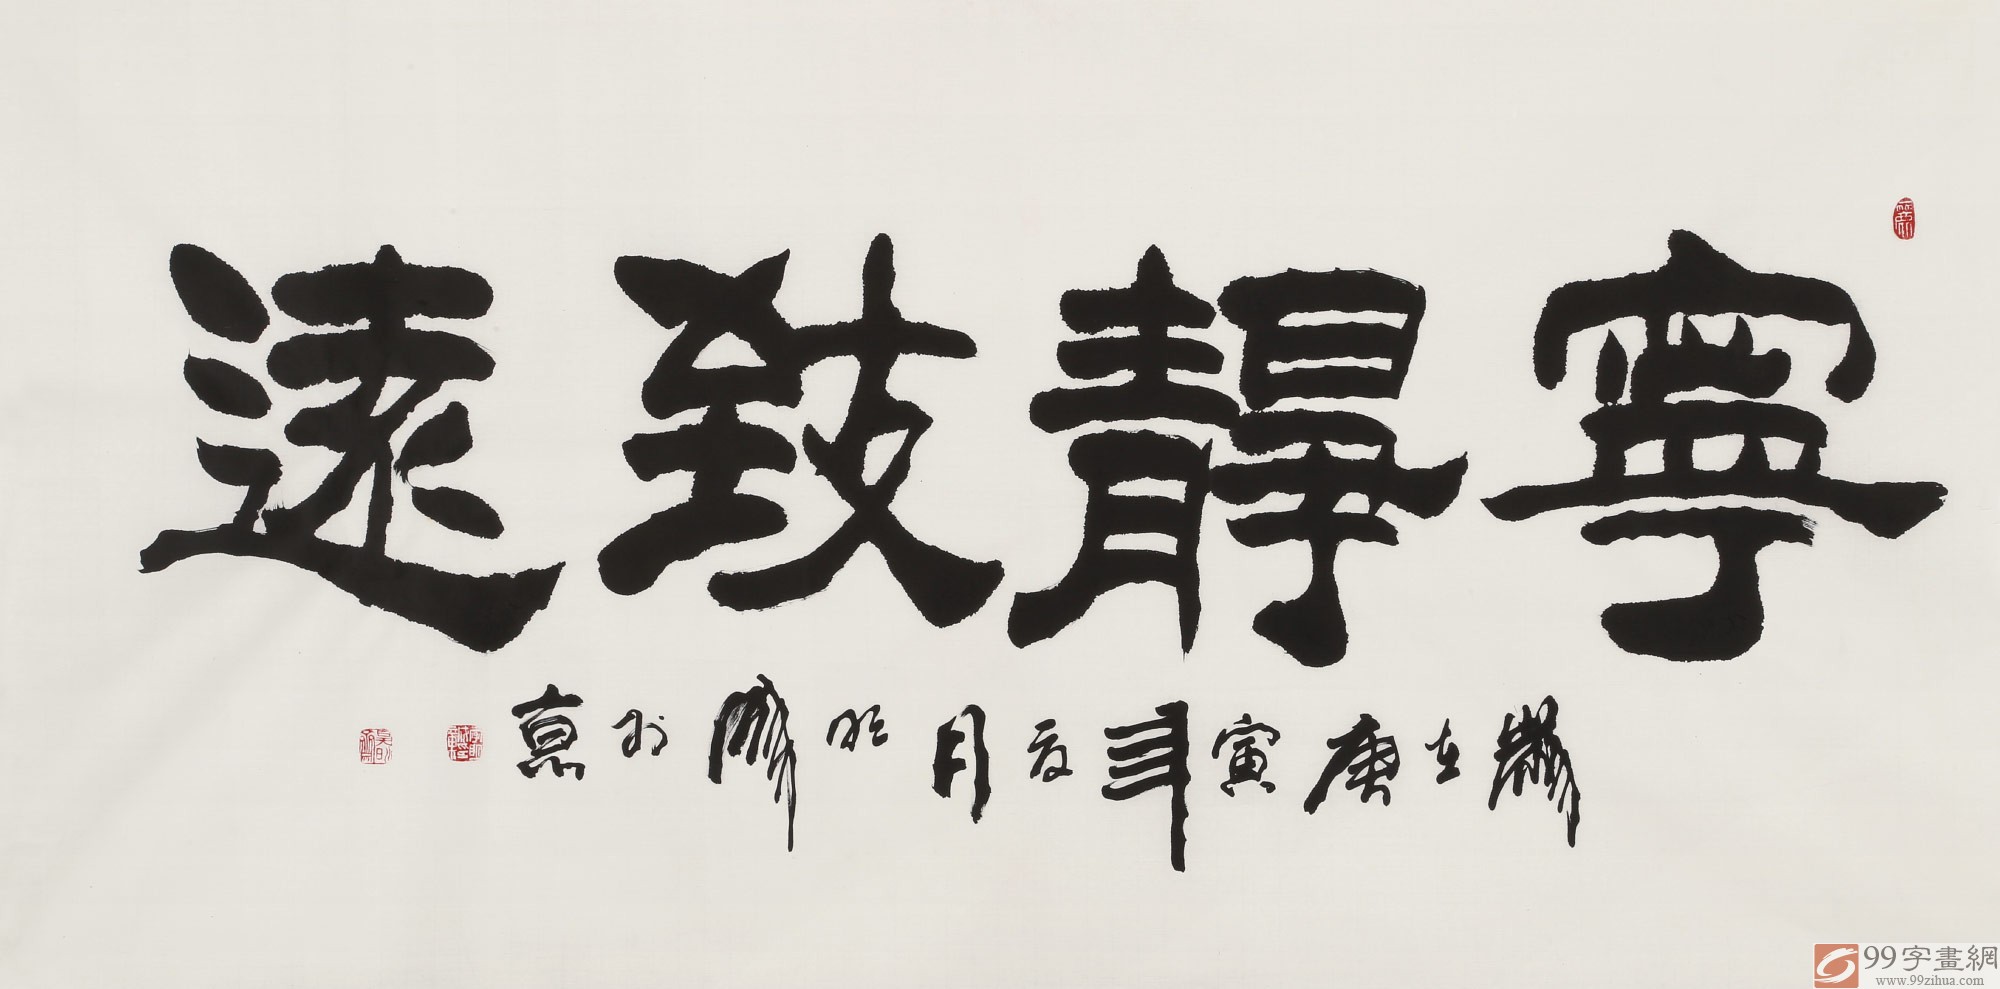 寧靜致遠
歲在庚寅年夏月
99字畫網
www.99zihua.com